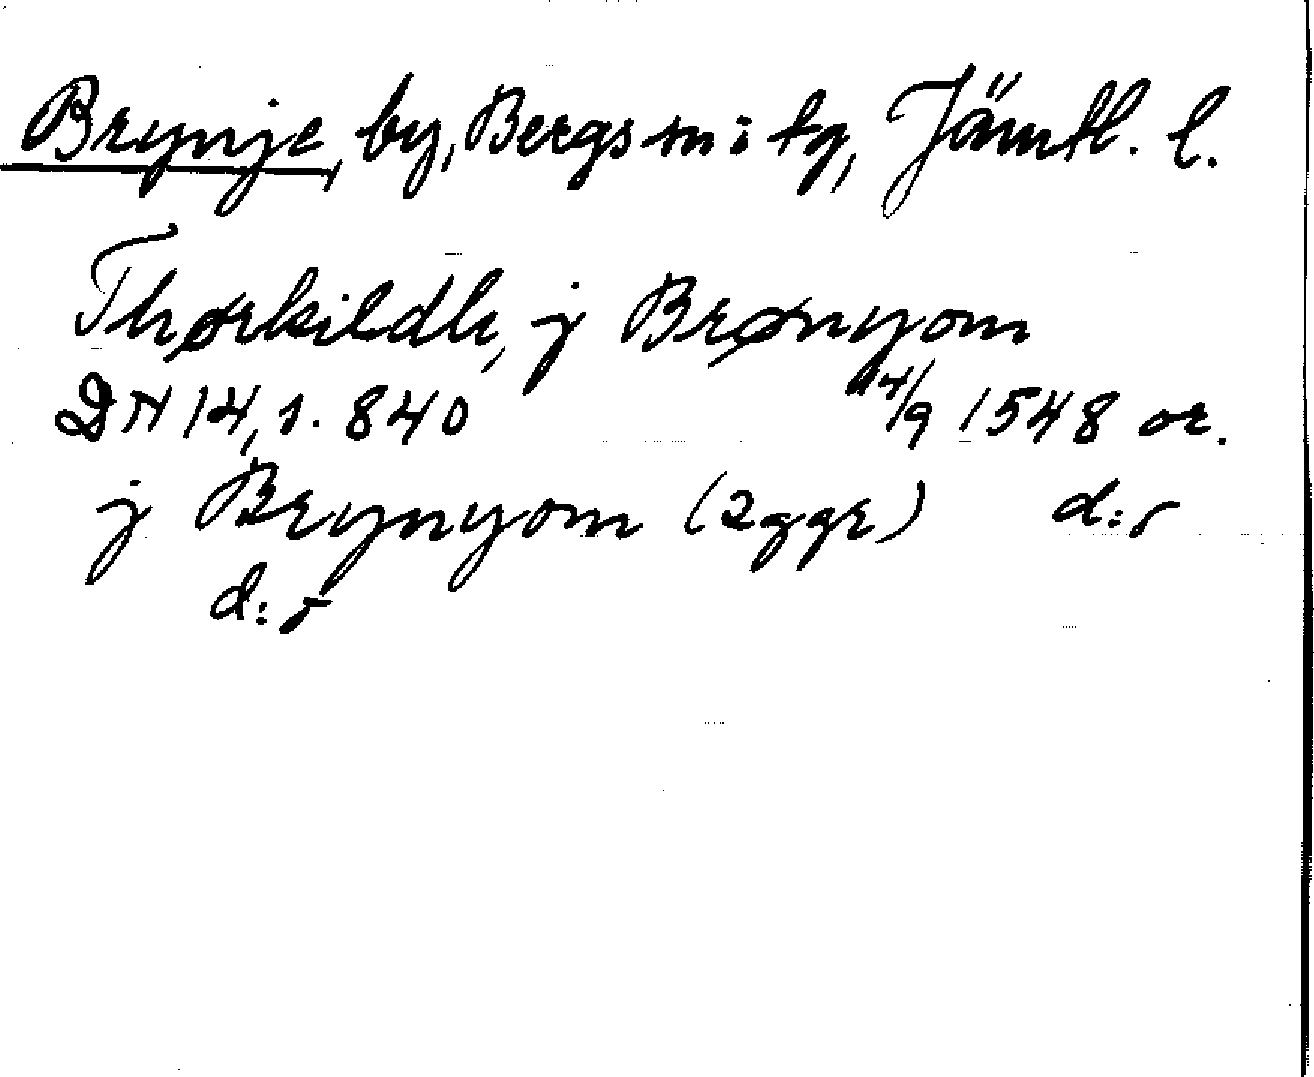 Brynje, by, Bergs sn i tg, Jämtl. l.
Thørkildh, j Brønyom
DN 14, s. 840 4/9 1548 or.
j Brynyom (2ggr) d:o
d:o